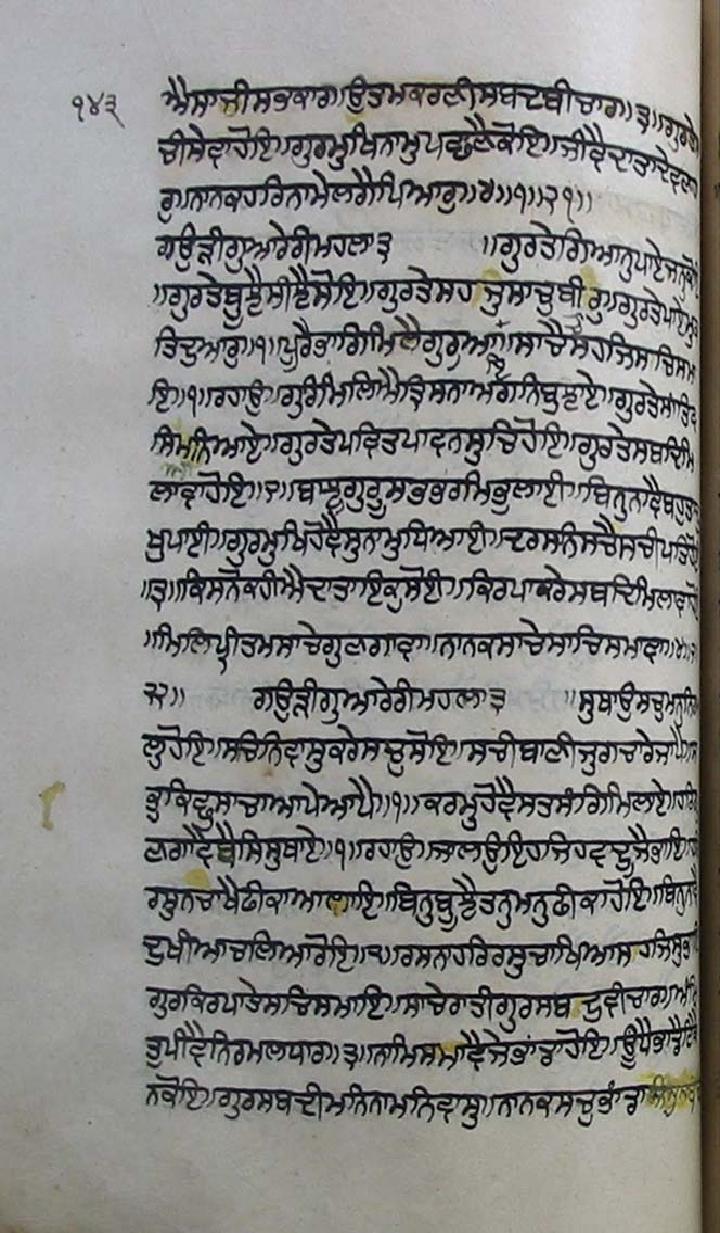 ੧੪੩
ਐਸਾਜੀਸਭਕਾਰ॥ਉਤਮਕਰਣੀਸਬਦਬੀਚਾਰ॥੩॥ਗੁਰਕੀ
ਚੀਸੇਵਾਹੋਇ॥ਗੁਰਮੁਖਿਨਾਮੁਪਛਾਣੈਕੋਇ॥ਜੀਵੈਦਾਤਾਦੇਵਣਹਾ
ਰੁ॥ਨਾਨਕਹਰਿਨਾਮੇਲਗੈਪਿਆਰੁ॥੪॥੧॥੨੧॥
ਗਉੜੀਗੁਆਰੇਰੀਮਹਲਾ੩ ॥ਗੁਰਤੇਗਿਆਨੁਪਾਏਜਨੁਕੋਇ
॥ਗੁਰਤੇਬੂਝੈਸੀਝੈਸੋਇ॥ਗੁਰਤੇਸਹਜੁਸਾਚੁਬੀਚਾਰੁ॥ਗੁਰਤੇਪਾਏਮੁਕ
ਤਿਦੁਆਰੁ॥੧॥ਪੂਰੈਭਾਗਿਮਿਲੈਗੁਰੁਆਇ॥ਸਾਚੈਸਹਜਿਸਾਚਿਸਮਾ
ਇ॥੧॥ਰਹਾਉ॥ਗੁਰਿਮਿਲਿਐਤ੍ਰਿਸਨਾਅਗਨਿਬੁਝਾਏ॥ਗੁਰਤੇਸਾਂਤਿਵ
ਸੈਮਨਿਆਏ॥ਗੁਰਤੇਪਵਿਤਪਾਵਨਸੁਚਿਹੋਇ॥ਗੁਰਤੇਸਬਦਿਮਿ
ਲਾਵਾਹੋਇ॥੨॥ਬਾਝੁਗੁਰੂਸਭਭਰਮਿਭੁਲਾਈ॥ਬਿਨੁਨਾਵੈਬਹੁਤਾਦੁ
ਖੁਪਾਈ॥ਗੁਰਮੁਖਿਹੋਵੈਸੁਨਾਮੁਧਿਆਈ॥ਦਰਸਨਿਸਚੈਸਚੀਪਤਿਹੋਈ
॥੩॥ਕਿਸਨੋਕਹੀਐਦਾਤਾਇਕੁਸੋਈ॥ਕਿਰਪਾਕਰੇਸਬਦਿਮਿਲਾਵਾਹੋਈ
॥ਮਿਲਿਪ੍ਰੀਤਮਸਾਚੇਗੁਣਗਾਵਾ॥ਨਾਨਕਸਾਚੇਸਾਚਿਸਮਾਵਾ॥੪॥੨॥
੨੨॥ ਗਉੜੀਗੁਆਰੇਰੀਮਹਲਾ੩ ॥ਸੁਥਾਉਸਚੁਮਨੁਨਿਰਮ
ਲੁਹੋਇ॥ਸਚਿਨਿਵਾਸੁਕਰੇਸਚੁਸੋਇ॥ਸਚੀਬਾਣੀਜੁਗਚਾਰੇਜਾਪੈ॥ਸ
ਭੁਕਿਛੁਸਾਚਾਆਪੇਆਪੈ॥੧॥ਕਰਮੁਹੋਵੈਸਤਸੰਗਿਮਿਲਾਏ॥ਹਰਿਗੁ
ਣਗਾਵੈਬੈਸਿਸੁਥਾਏ॥੧॥ਰਹਾਉ॥ਜਾਲਉਇਹਜਿਹਵਾਦੂਜੈਭਾਇ॥ਹਰਿ
ਰਸੁਨਚਾਖੈਫੀਕਾਆਲਾਇ॥ਬਿਨੁਬੂਝੈਤਨੁਮਨੁਫੀਕਾਹੋਇ॥ਬਿਨੁਨਾਵੈ
ਦੁਖੀਆਚਲਿਆਰੋਇ॥੨॥ਰਸਨਾਹਰਿਰਸੁਚਾਖਿਆਸਹਜਿਸੁਭਾਇ
ਗੁਰਕਿਰਪਾਤੇਸਚਿਸਮਾਇ॥ਸਾਚੇਰਾਤੀਗੁਰਸਬਦੁਵੀਚਾਰ॥ਅੰਮ੍ਰਿ
ਤੁਪੀਵੈਨਿਰਮਲਧਾਰ॥੩॥ਨਾਮਿਸਮਾਵੈਜੋਭਾਂਡਾਹੋਇ॥ਊਂਧੈਭਾਂਡੈਟਿਕੈ
ਨਕੋਇ॥ਗੁਰਸਬਦੀਮਨਿਨਾਮਨਿਵਾਸੁ॥ਨਾਨਕਸਚੁਭਾਂਡਾ